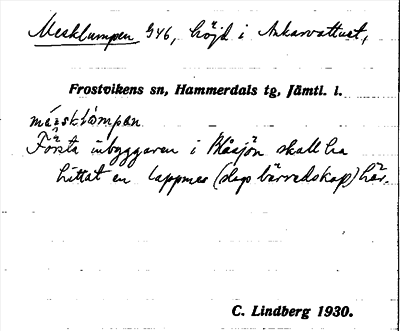 Mesklumpen 946, höjd i Ankarvattnet,
Frostvikens sn, Hammerdals tg, Jämtl. l.
mä̀sklò̀mpan
Första inbyggaren i Blåsjön skall ha
hittat en lappmes (dvs bärredskap) här.
C. Lindberg 1930.